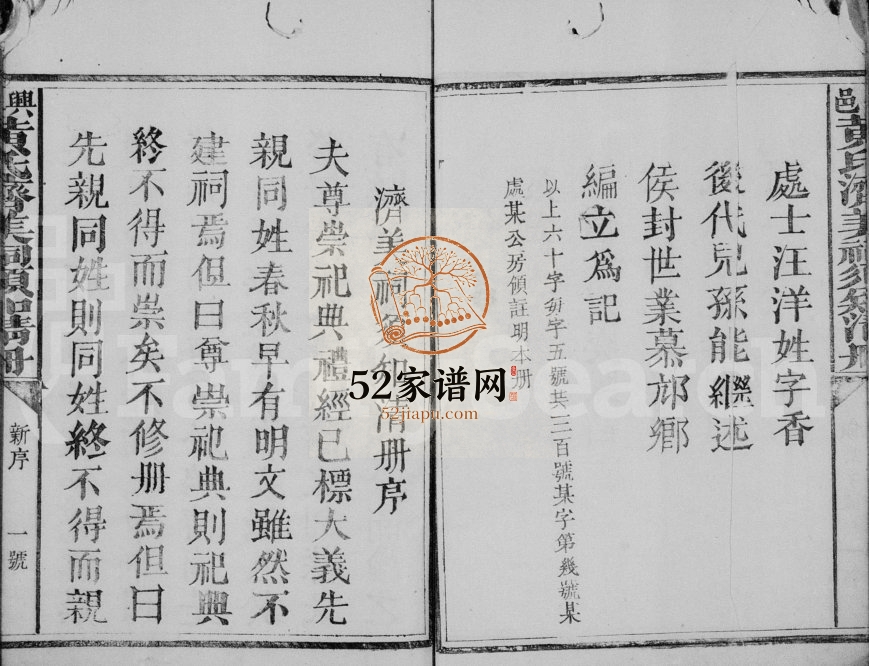 邑黃氏濟美祠須知清册
處士汪洋姓字香
後代兒孫能繼述
侯封世業慕邡鄉
編立爲記
以上六十字每字五號共三百號某字第幾號某
處某公房領註明本册
濟美祠須知清册序
夫尊崇祀典禮經已標大義先
親同姓春秋早有明文雖然不
建祠焉但曰尊崇祀典則祀典
終不得而崇矣不修册焉但曰
先親同姓則同姓終不得而親
興黃氏濟美祠須知清册
新序
一號
52家谱网
52jiapu.com